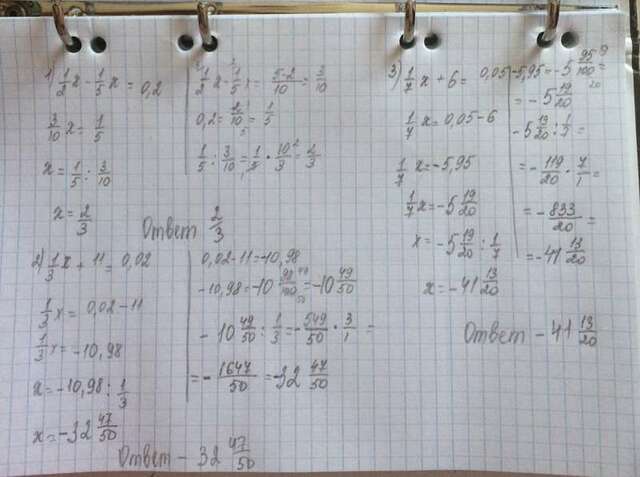 1) 1/2 x - 1/5 x = 0,2
3/10 x = 1/5
x = 1/5 : 3/10
x = 2/3
1/2 x - 1/5 x = 5-2/10 = 3/10
0,2 = 2/10 = 1/5
1/5 : 3/10 = 1/5 · 10/3 = 2/3
Ответ 2/3
2) 1/3 x + 11 = 0,02
1/3 x = 0,02 - 11
1/3 x = -10,98
x = -10,98 : 1/3
x = -32 47/50
0,02 - 11 = -10,98
-10,98 = -10 98/100 = -10 49/50
- 10 49/50 : 1/3 = - 549/50 · 3/1 =
= - 1647/50 = -32 47/50
Ответ - 32 47/50
3) 1/7 x + 6 = 0,05
1/7 x = 0,05 - 6
1/7 x = -5,95
1/7 x = -5 19/20
x = -5 19/20 : 1/7
x = -41 13/20
-5,95 = -5 95/100 =
= -5 19/20
-5 19/20 : 1/7 =
= - 119/20 · 7/1 =
= - 833/20 =
= -41 13/20
Ответ - 41 13/20